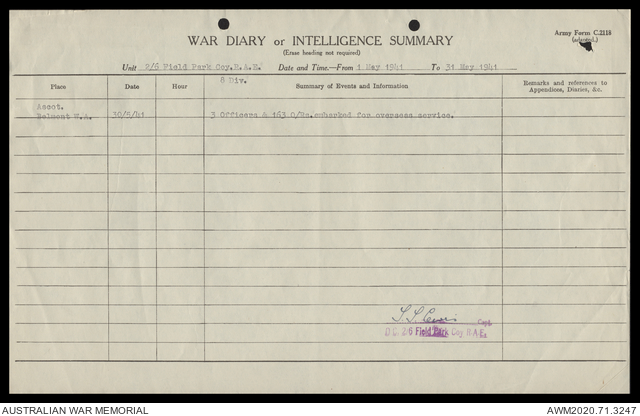 Army Form C.2118
(adapted.)
WAR DIARY or INTELLIGENCE SUMMARY
(Erase heading not required)
Unit 2/6 Field Park Coy.R.A.E. Date and Time.—From 1 May 1941 To 31 May 1941
8 Div.
Place Date Hour Summary of Events and Information Remarks and references to
Appendices, Diaries, &c.
Ascot.
Belmont W.A. 30/5/41 3 Officers & 163 O/Rs.embarked for overseas service.
Capt.
O.C. 2/6 Field Park Coy R.A.E.
AUSTRALIAN WAR MEMORIAL AWM2020.71.3247